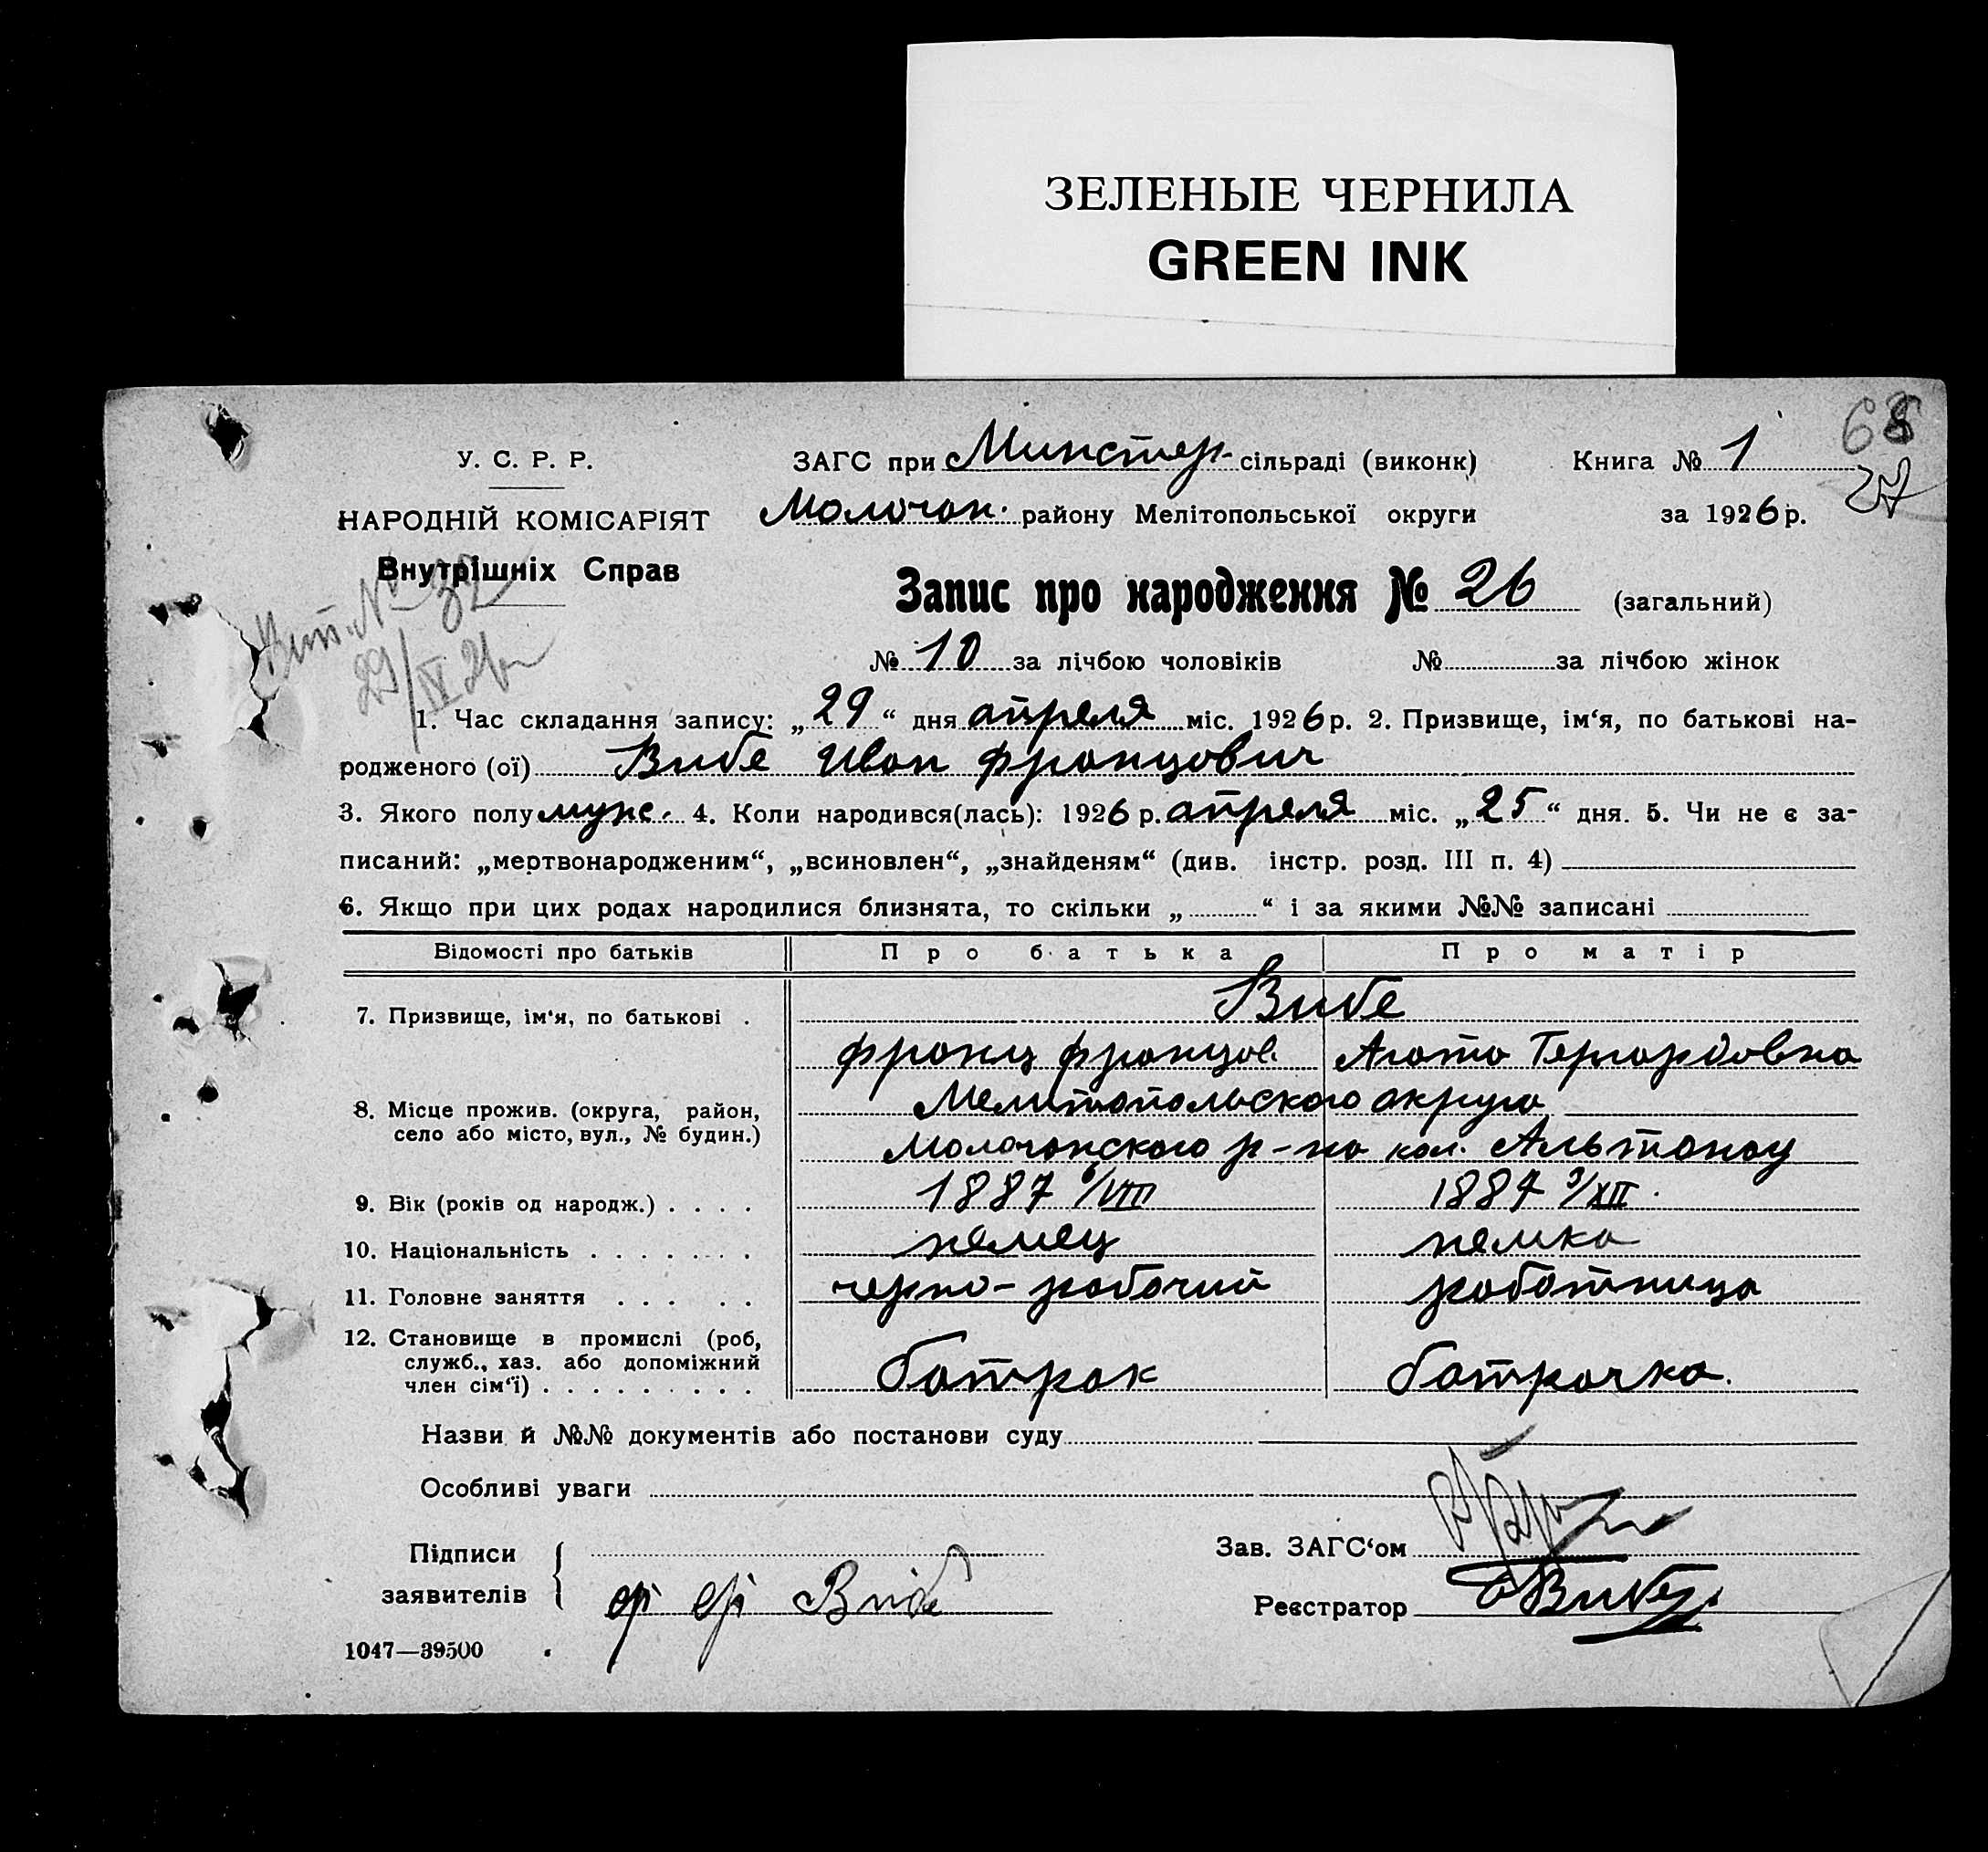 ЗЕЛЕНЫЕ ЧЕРНИЛА
GREEN INK
68
27
У. С. Р. Р.
НАРОДНІЙ КОМІСАРІЯТ
Внутрішніх Справ
Вип. № 32
29/IV 26
ЗАГС при Минстер. сільраді (виконк) Книга № 1
Молочан. району Мелітопольської округи за 1926 р.
Запис про народження № 26 (загальний)
№ 10 за лічбою чоловіків № за лічбою жінок
1. Час складання запису: „29“ дня апреля міс. 1926 р. 2. Призвище, ім‘я, по батькові на-
родженого (ої) Вибе Иван Францович
3. Якого полу муж. 4. Коли народився(лась): 1926 р. апреля міс. „25“ дня. 5. Чи не є за-
писаний: „мертвонародженим“, „всиновлен“, „знайденям“ (див. інстр. розд. III п. 4)
6. Якщо при цих родах народилися близнята, то скільки „ “ і за якими №№ записані
Відомості про батьків Про батька Про матір
7. Призвище, ім‘я, по батькові . Вибе
Франц Францов. Агата Герхардовна
8. Місце прожив. (округа, район, Мелитопольского округа
село або місто, вул., № будин.) Молочанского р-на кол. Альтонау
9. Вік (років од народж.) . . . . 1887 6/VIII 1887 9/XII.
10. Національність . . . . . . . немец немка
11. Головне заняття . . . . . черно-рабочий работница
12. Становище в промислі (роб,
служб., хаз. або допоміжний батрак батрачка.
член сім‘ї) . . . . . . . . .
Назви й №№ документів або постанови суду
Особливі уваги
Підписи
заявителів Ф Ф Вибе
Зав. ЗАГС‘ом
Реєстратор Вибе
1047—39500